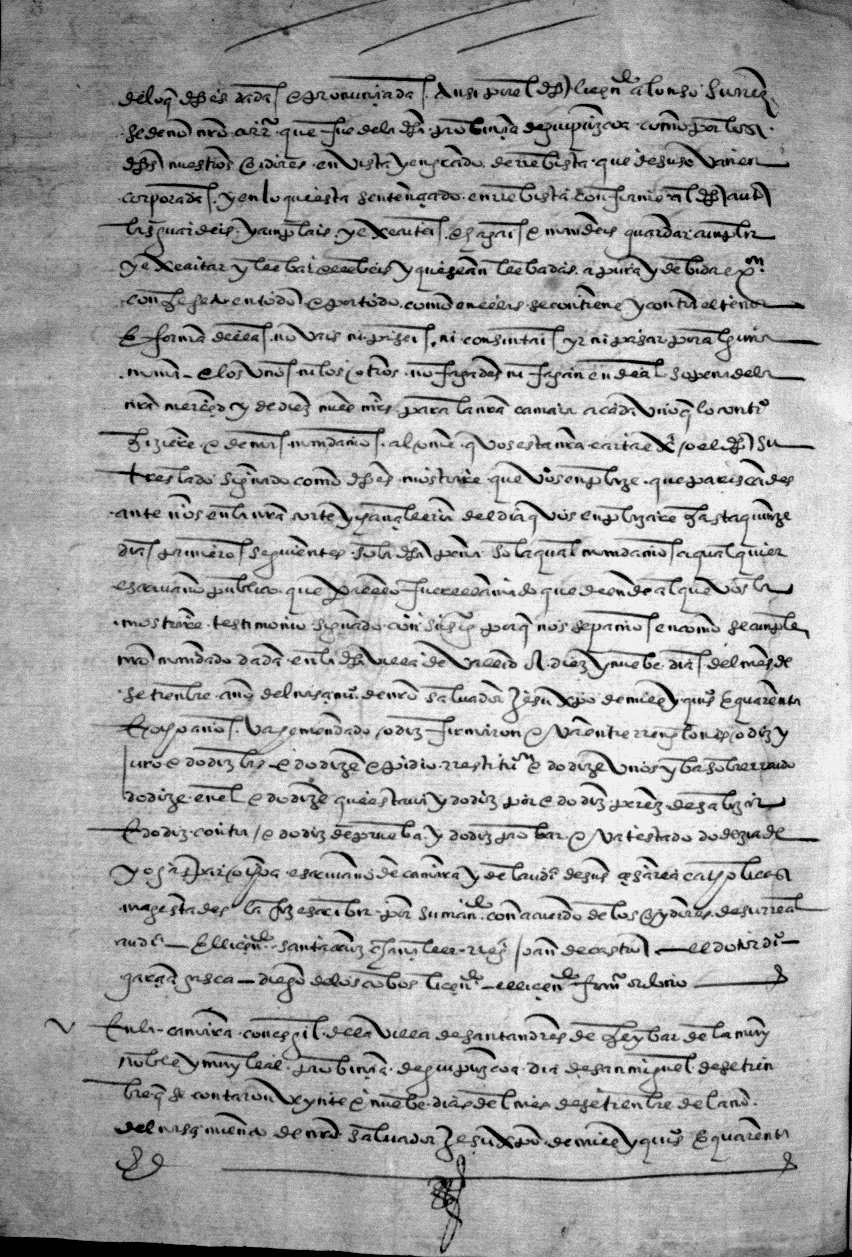 de lo q dhas es dada e pronunçiada. Ansi por el dho liçendo alonso suarez
sedeño nro corror que fue dela dha probinçia de guipuzcoa como por los
dhos nuestros oidores en vista y en grado de rrebista que desuso van en
corporadas. y en lo que esta sentençiado en rrebista conforme al dho auto
las guardeis y cunplais y executeis e hagais e mandeis guardar cunplir
y executar y llebar e llebeis y que sean llebadas a pura y debida exon
con hefeto en todo e por todo como en ellas se contiene y contra el tenor
e forma dellas no vais ni paseis ni consintais yr ni pasar por alguna
manera e los vnos ni los otros no fagades ni fagan ende al so pena dela
nra merçed y de diez mill mrs para la nra camara a cada vno q lo contro
hiziere e demas mandamos al ome q vos esta nra carta exe o el dho su
treslado signado como dho es mostrare que vos enplaze que parezcades
ante nos en la nra corte y chançilleria del dia q vos enplazare hasta quinze
dias primeros seguientes so la dha pena so la qual mandamos a qualquier
escriuano publico que para ello fuere llamado que de ende al que vos la
mostrare testimonio signado con su sigo porq nos sepamos en como se cunple
nro mandado dada en la dha villa de Vallid A diez y nuebe dias del mes de
setienbre año del nasçimio de nro saluador Jesu xpo de mill y quios e quarenta
e ocho años. Va emendado o diz firmaron e va entre rrenglones o diz y
juro e do diz las e do dize e pidio rrestituon e do dize vnos y ba sobre rraido
do dize en el e do dize questaua y do diz por e do diz perez de sabizar
e do diz contra / e do diz de prueba y do diz probar e va testado do dezia de
yo escriuano de camara y de la audia de sus çesareas catholicas
magestades la fiz escribir por su mando con acuerdo de los oydores de su rreal
audia — El liçendo santa cruz chançiller rregi Joan de castro — el dotor diego
garçia gasca — diego delos cobos liçendo — el liçendo franco
En la camara conçegil dela villa de santandres de heybar dela muy
noble y muy leal probinçia de guipuzcoa dia de san miguel de setien
bre q se contaron veynte e nuebe dias del mes de setienbre del año
del nasçimiento de nro saluador Jesu xpo de mill y quios e quarenta